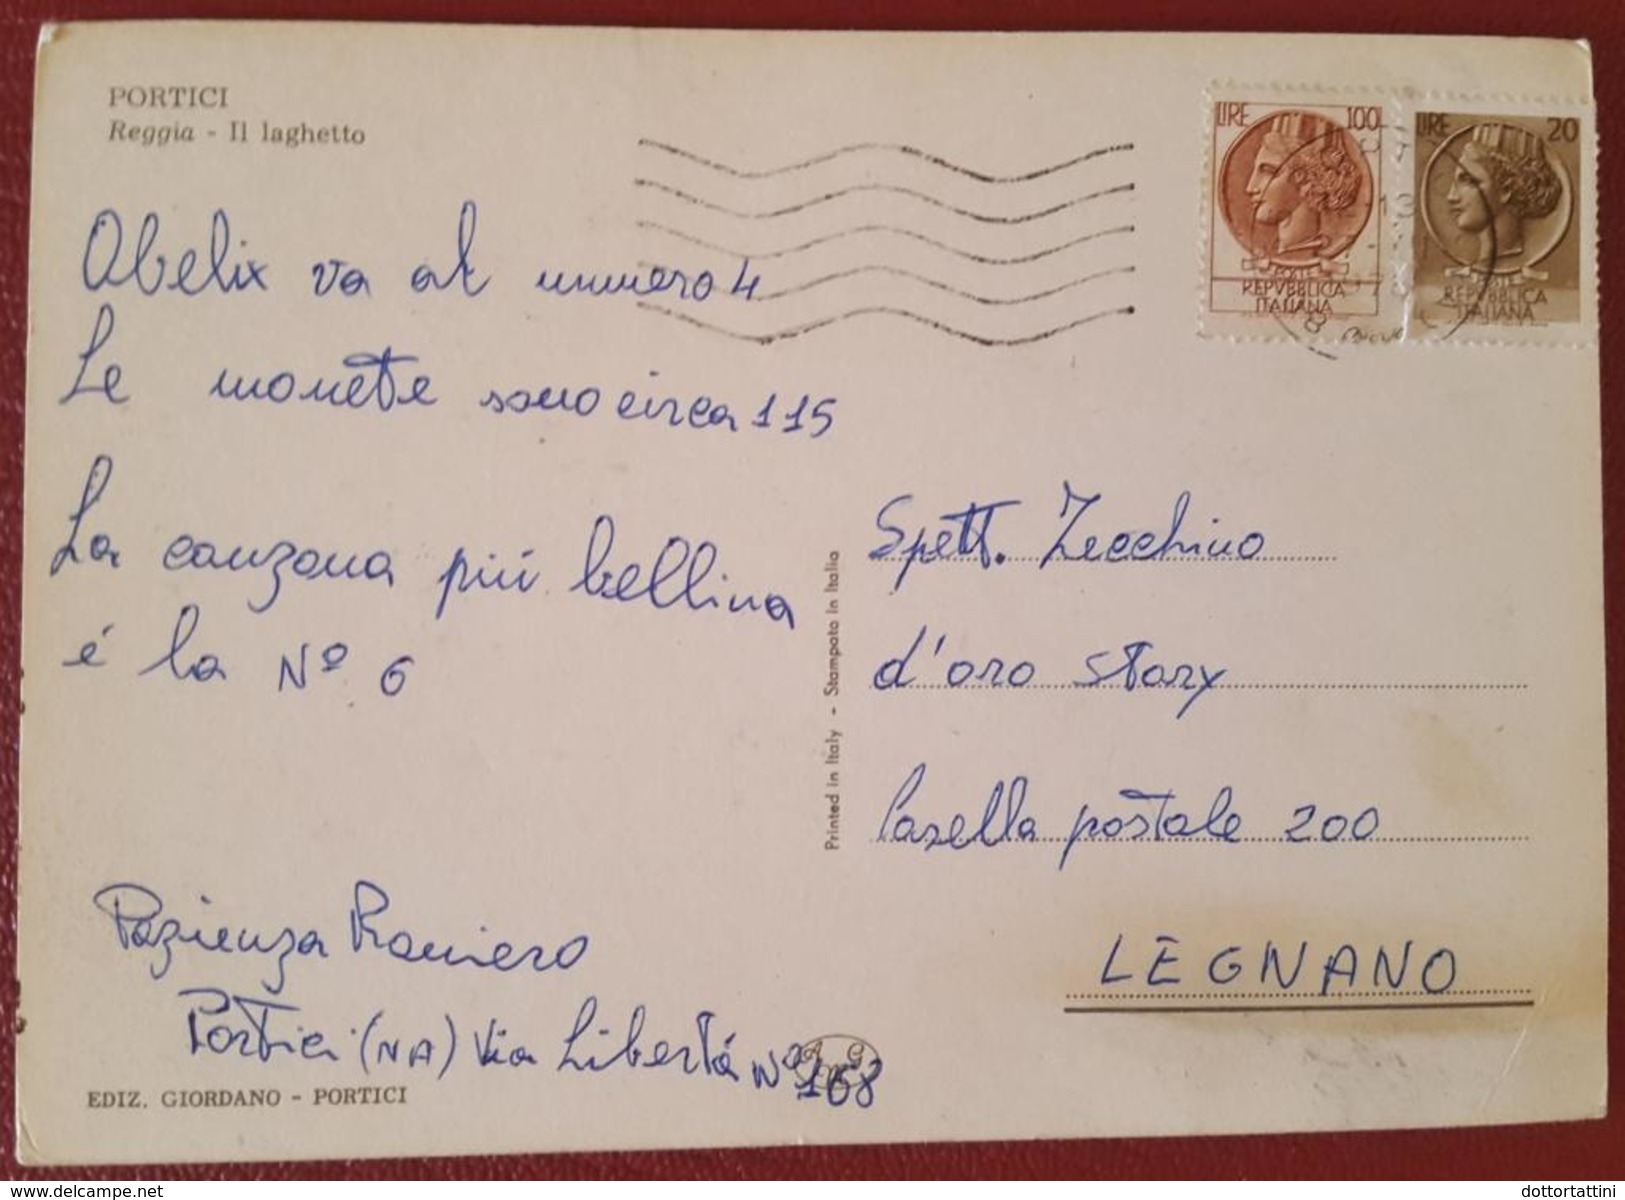 PORTICI
Reggia - Il laghetto
LIRE 100
POSTE
REPVBBLICA
ITALIANA
LIRE 20
POSTE
REPVBBLICA
ITALIANA
Obelix va al numero 4
Le monete sono circa 115
La canzona più bellina
é la Nº 6
Pazienza Raniero
Portici (NA) Via Libertá Nº 168
EDIZ. GIORDANO - PORTICI
Printed in Italy - Stampato in Italia
Spett. Zecchino
d'oro story
Casella postale 200
LEGNANO
delcampe.net
dottortattini